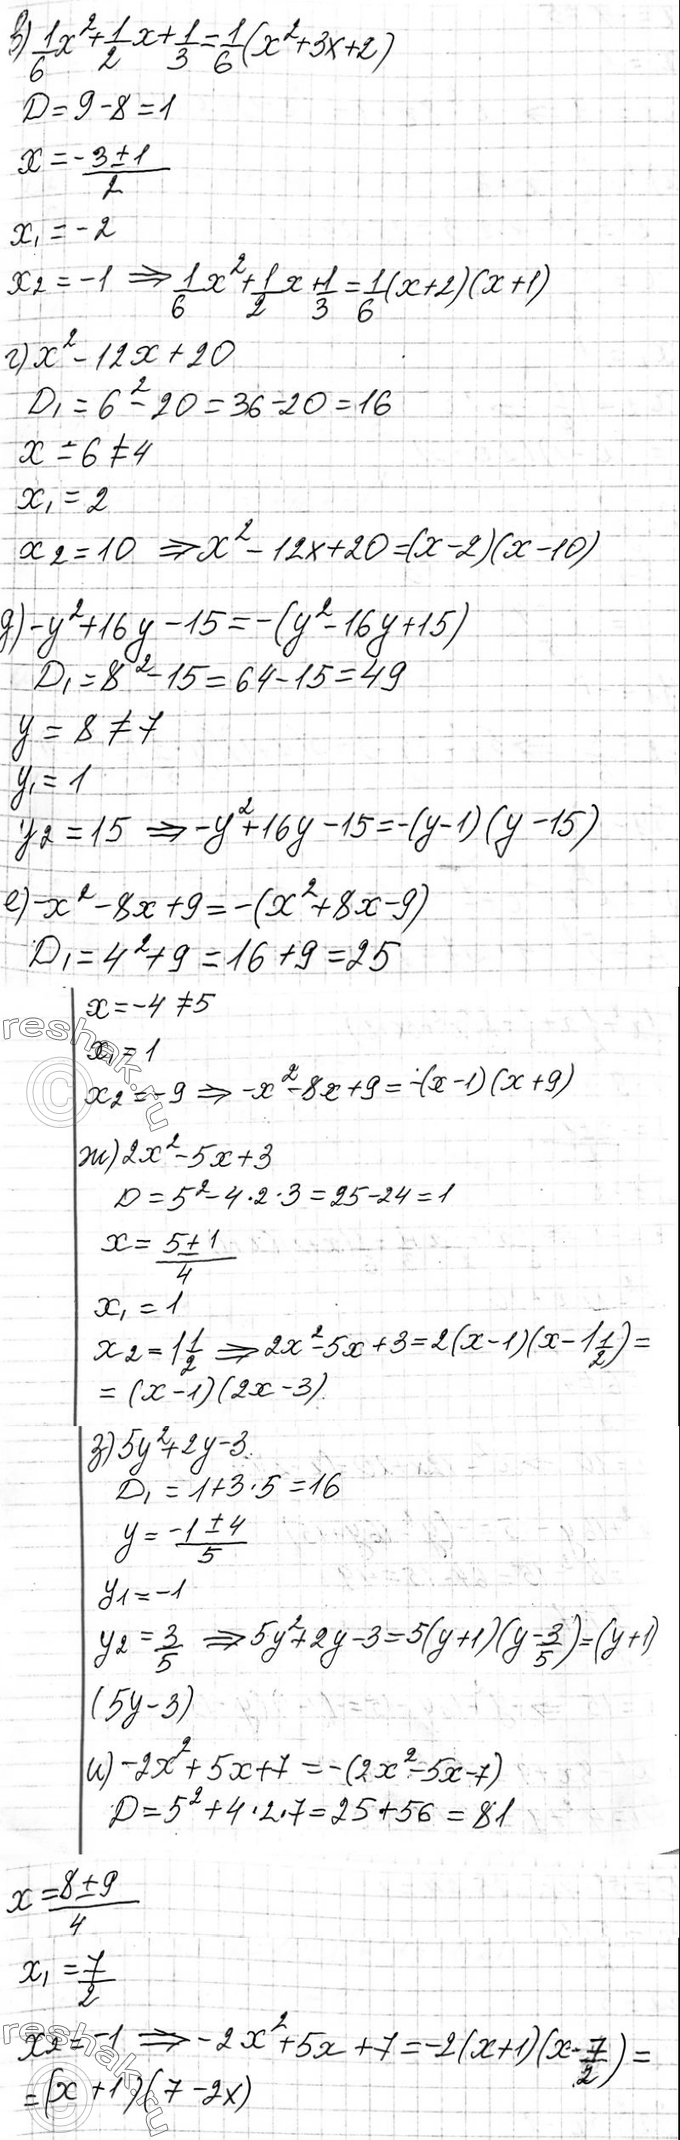 в) 1/6 x² + 1/2 x + 1/3 = 1/6 (x² + 3x + 2)
D = 9 - 8 = 1
x = -3±1 / 2
x₁ = -2
x₂ = -1 ⇒ 1/6 x² + 1/2 x + 1/3 = 1/6 (x+2)(x+1)
г) x² - 12x + 20
D₁ = 6² - 20 = 36 - 20 = 16
x = 6 ∓ 4
x₁ = 2
x₂ = 10 ⇒ x² - 12x + 20 = (x-2)(x-10)
д) -y² + 16y - 15 = -(y² - 16y + 15)
D₁ = 8² - 15 = 64 - 15 = 49
y = 8 ∓ 7
y₁ = 1
y₂ = 15 ⇒ -y² + 16y - 15 = -(y-1)(y-15)
е) -x² - 8x + 9 = -(x² + 8x - 9)
D₁ = 4² + 9 = 16 + 9 = 25
x = -4 ∓ 5
x₁ = 1
x₂ = -9 ⇒ -x² - 8x + 9 = -(x-1)(x+9)
ж) 2x² - 5x + 3
D = 5² - 4·2·3 = 25 - 24 = 1
x = 5±1 / 4
x₁ = 1
x₂ = 1 1/2 ⇒ 2x² - 5x + 3 = 2(x-1)(x - 1 1/2) =
= (x-1)(2x-3)
з) 5y² + 2y - 3
D₁ = 1 + 3·5 = 16
y = -1±4 / 5
y₁ = -1
y₂ = 3/5 ⇒ 5y² + 2y - 3 = 5(y+1)(y - 3/5) = (y+1)
(5y-3)
и) -2x² + 5x + 7 = -(2x² - 5x - 7)
D = 5² + 4·2·7 = 25 + 56 = 81
x = 8±9 / 4
x₁ = 7/2
x₂ = -1 ⇒ -2x² + 5x + 7 = -2(x+1)(x - 7/2) =
= (x+1)(7-2x)
reshak.ru
reshak.ru